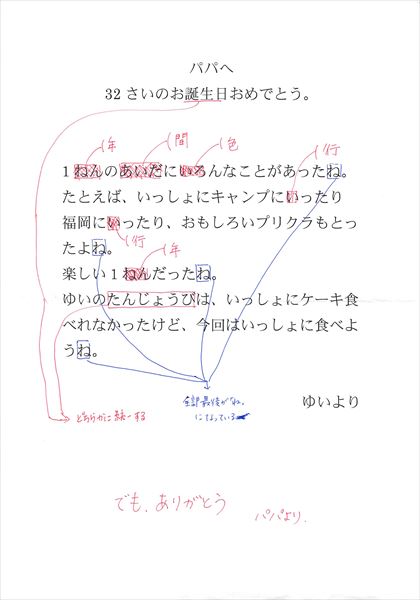 パパへ
32さいのお誕生日おめでとう。
1年
間
1色
1行
1ねんのあいだにいろんなことがあったね。
たとえば、いっしょにキャンプにいったり
福岡にいったり、おもしろいプリクラもとっ
たよね。
1行
1年
楽しい1ねんだったね。
ゆいのたんじょうびは、いっしょにケーキ食
べれなかったけど、今回はいっしょに食べよ
うね。
全部最後が「ね」
になっている
どちらかに統一する
ゆいより
でも、ありがとう
パパより.